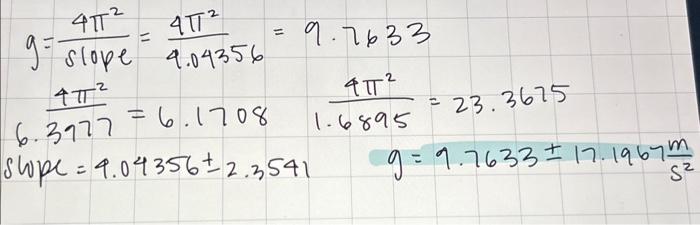 g = 4π²/slope = 4π²/4.04356 = 9.7633
4π²/6.3977 = 6.1708 4π²/1.6895 = 23.3675
slope = 4.04356 ± 2.3541 g = 9.7633 ± 17.1967 m/s²